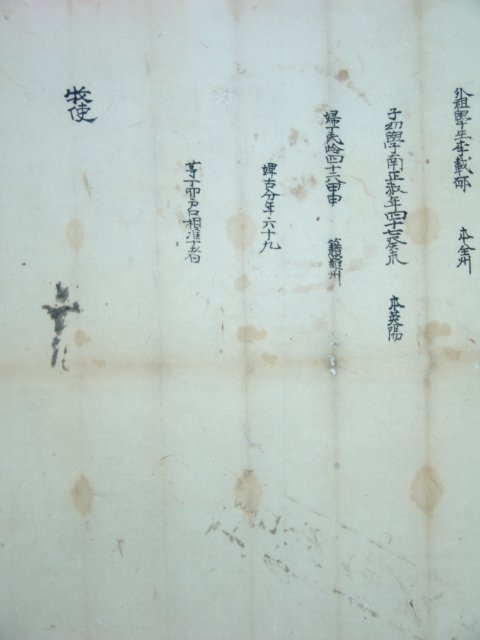 外祖學生李載郁 本全州
子幼學南正 年四十七癸未 本英陽
婦丁氏齡四十六甲申 籍羅州
婢古分年六十九
等丁卯戶口相準者
牧使